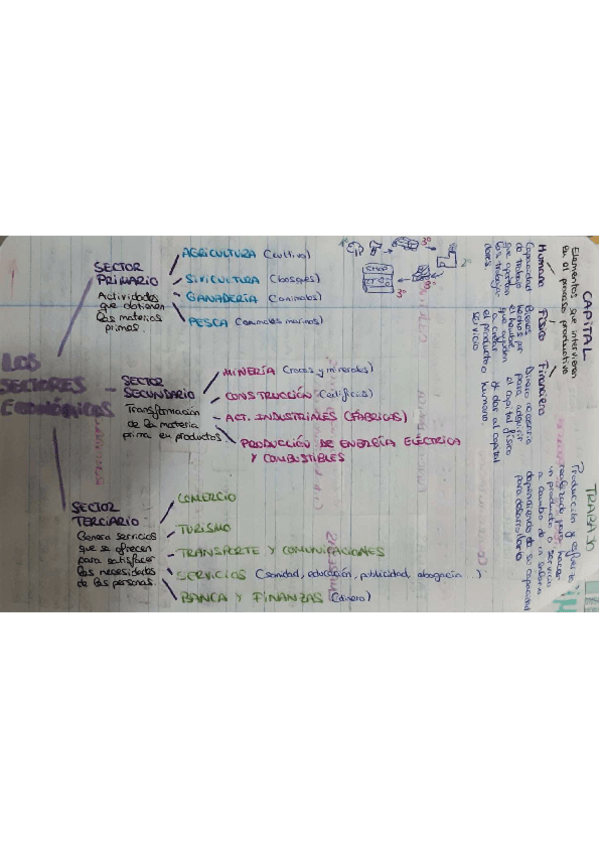 LOS
SECTORES
ECONÓMICOS
SECTOR
PRIMARIO
Actividades
que obtienen
las materias
primas.
AGRICULTURA (cultivo)
SIVICULTURA (bosques)
GANADERÍA (animales)
PESCA (animales marinos)
1º
3º
2º
SHOP
3º
3º
SECTOR
SECUNDARIO
Transformación
de la materia
prima en productos
MINERÍA (rocas y minerales)
CONSTRUCCIÓN (edificios)
ACT. INDUSTRIALES (FÁBRICAS)
PRODUCCIÓN DE ENERGÍA ELÉCTRICA
Y COMBUSTIBLES
SECTOR
TERCIARIO
Genera servicios
que se ofrecen
para satisfacer
las necesidades
de las personas.
COMERCIO
TURISMO
TRANSPORTE Y COMUNICACIONES
SERVICIOS (sanidad, educación, publicidad, abogacía...)
BANCA Y FINANZAS (dinero)
CAPITAL
Elementos que intervienen
en el proceso productivo
Humano
Capacidad
de trabajo
que aportan
los trabaja-
dores
Físico
Bienes
hechos por
el hombre
que ayudan
a crear
el producto o
servicio
Financiero
Dinero necesario
para adquirir
el capital físico
y dar al capital
humano
TRABAJO
Producción y esfuerzo
realizado para hacer
un producto o servicio
a cambio de un salario
dependiendo de su capacidad
para desarrollarlo